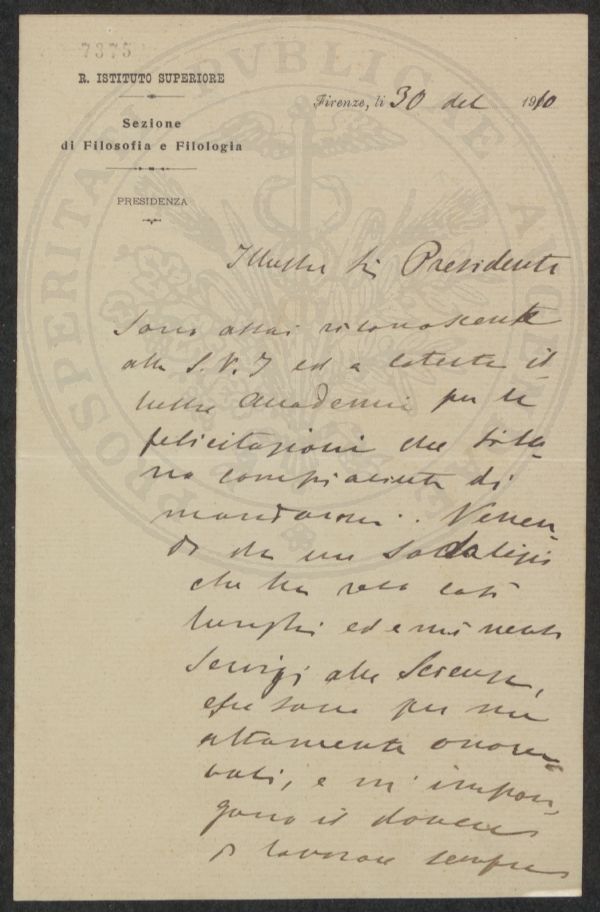 7375
R. ISTITUTO SUPERIORE
Sezione
di Filosofia e Filologia
PRESIDENZA
Firenze, li 30 del 1910
Illustre Sig. Presidente
Sono assai riconoscente
alla S.V.I ed a cotesta il
lustre Accademia per le
felicitazioni che si so
no compiaciute di
mandarmi. Venen
do da un Sodalizio
che ha reso così
lunghi ed eminenti
servigi alla Scienza,
esse sono per me
altamente onore
voli, e m'impon
gono il dovere
di lavorare sempre
PROSPERITATI PVBLICAE AVGENDAE